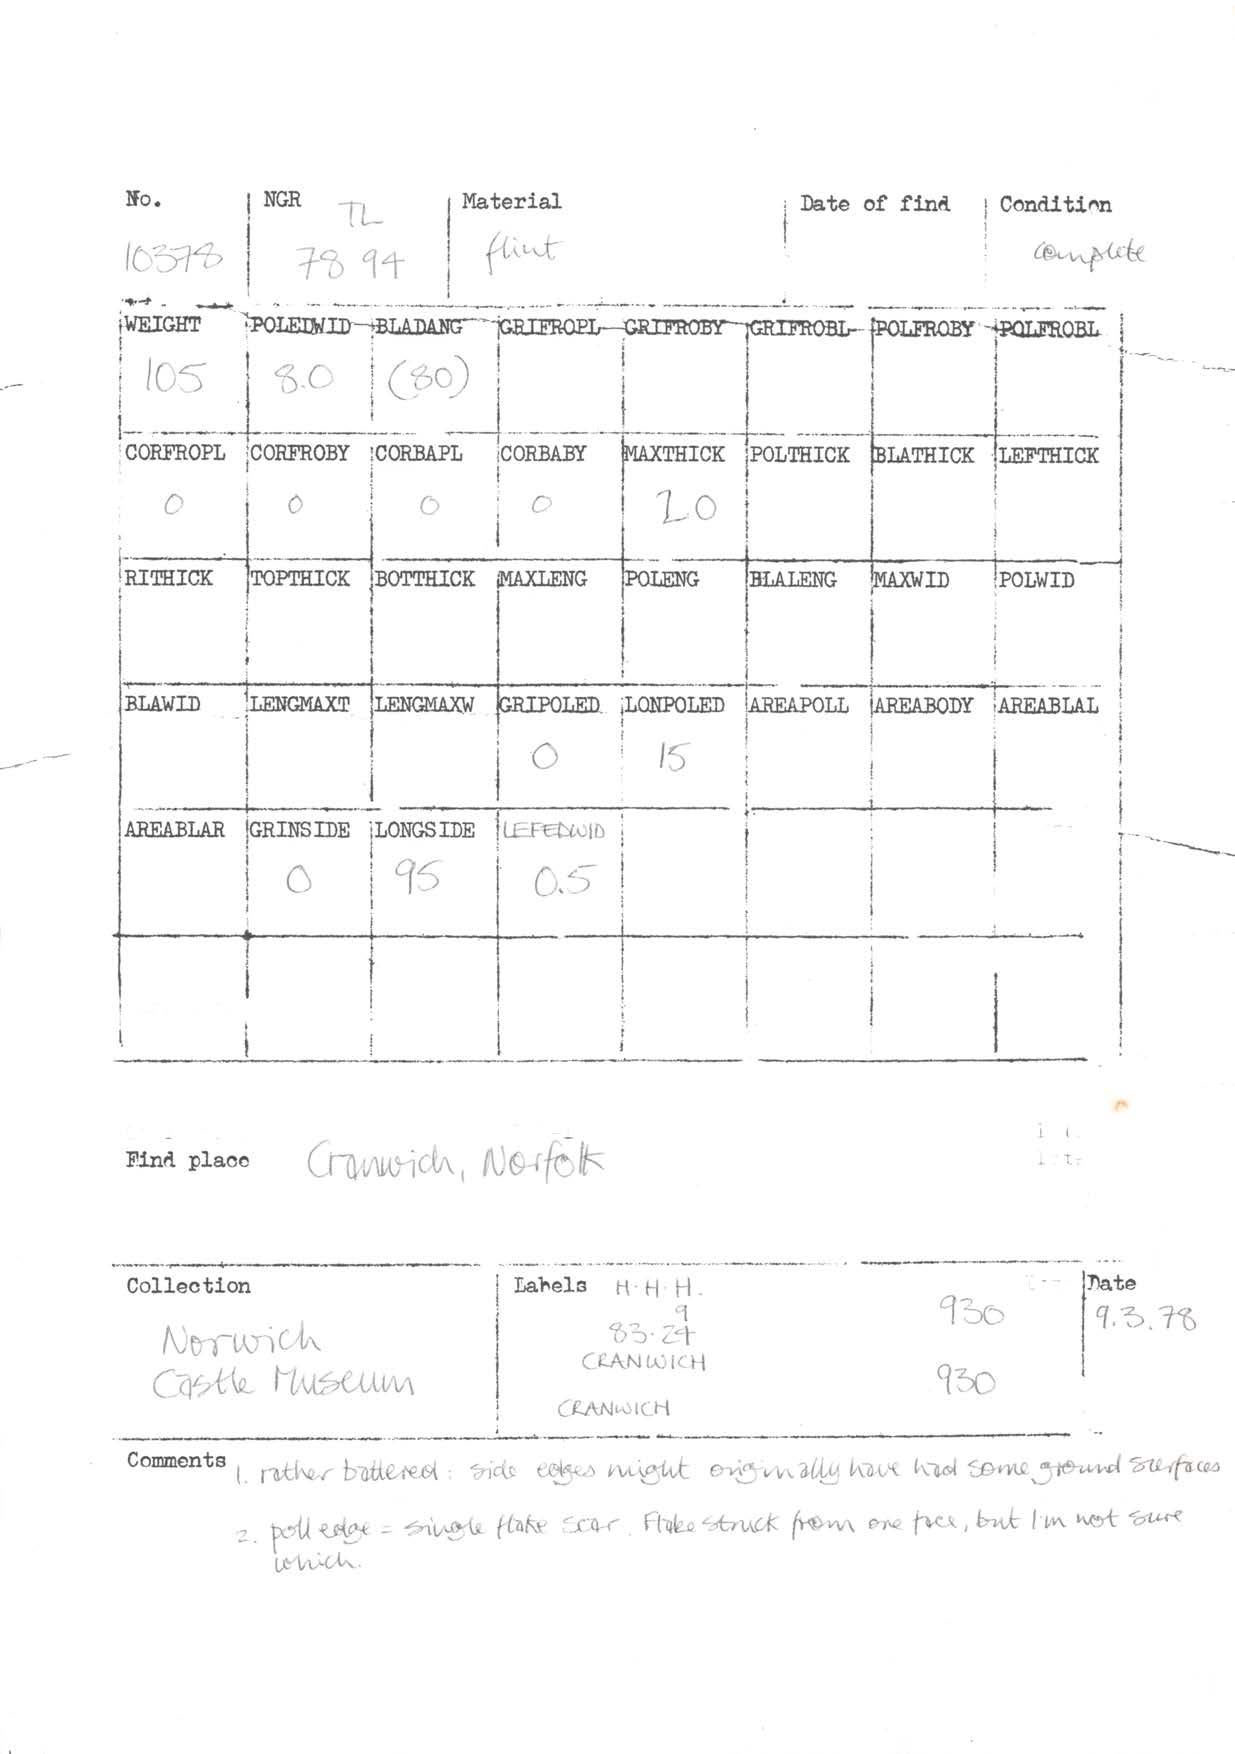 No. NGR Material Date of find Condition
TL
10378 78 94 flint complete
WEIGHT POLEDWID BLADANG GRIFROPL GRIFROBY GRIFROBL POLFROBY POLFROBL
105 8.0 (80)
CORFROPL CORFROBY CORBAPL CORBABY MAXTHICK POLTHICK BLATHICK LEFTHICK
0 0 0 0 20
RITHICK TOPTHICK BOTTHICK MAXLENG POLENG BLALENG MAXWID POLWID
BLAWID LENGMAXT LENGMAXW GRIPOLED LONPOLED AREAPOLL AREABODY AREABLAL
0 15
AREABLAR GRINSIDE LONGSIDE LEFEDWID
0 95 0.5
Find place Cranwich, Norfolk
Collection Labels H.H.H. Date
9 930 9.3.78
Norwich 83.24
CRANWICH
Castle Museum 930
CRANWICH
Comments 1. rather battered: side edges might originally have had some ground surfaces
2. poll edge = single flake scar. Flake struck from one face, but I'm not sure
which.